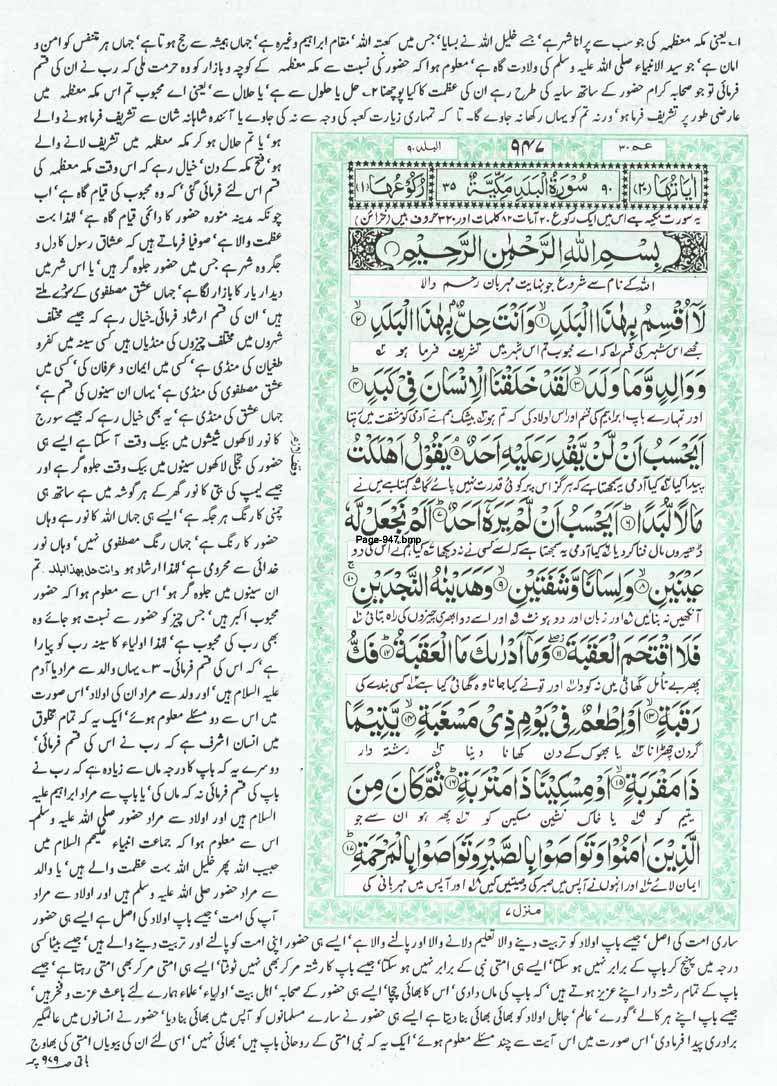 ۱۔ یعنی مکہ معظمہ کی جو سب سے پرانا شہر ہے، جسے خلیل اللہ نے بسایا، جس میں کعبتہ اللہ، مقام ابراہیم وغیرہ ہے، جہاں ہمیشہ سے حج ہوتا ہے، جہاں ہر متنفس کو امن و
امان ہے، جو سید الانبیاء صلی اللہ علیہ وسلم کی ولادت گاہ ہے، معلوم ہوا کہ حضور کی نسبت سے مکہ معظمہ کے کوچہ و بازار کو وہ حرمت ملی کہ رب نے ان کی قسم
فرمائی تو جو صحابہ کرام حضور کے ساتھ سایہ کی طرح رہے ان کی عظمت کا کیا پوچھنا ۲۔ حل یا حلول سے ہے، یا حلال سے، یعنی اے محبوب تم اس مکہ معظمہ میں
عارضی طور پر تشریف فرما ہو، ورنہ تم کو یہاں رکھا نہ جاوے گا۔ تا کہ تمہاری زیارت کعبہ کی وجہ سے نہ کی جاوے یا آئندہ شاہانہ شان سے تشریف فرما ہونے والے
البلد ۹۰
۹۴۷
عمّ ۳۰
اٰیَاتُهَا (۲۰) ۹۰ سُوْرَۃُ الْبَلَدِ مَکِّیَّۃٌ ۳۵ رُکُوْعُهَا (۱)
یہ سورت مکیہ ہے اس میں ایک رکوع ۲۰ آیات ۸۲ کلمات اور ۳۲۰ حروف ہیں (خزائن)
بِسْمِ اللّٰهِ الرَّحْمٰنِ الرَّحِیْمِ
اللہ کے نام سے شروع جو نہایت مہربان رحم والا
لَاۤ اُقْسِمُ بِهٰذَا الْبَلَدِ ۱ وَاَنْتَ حِلٌّۢ بِهٰذَا الْبَلَدِ ۲
مجھے اس شہر کی قسم کہ اے محبوب تم اس شہر میں تشریف فرما ہو
وَ وَالِدٍ وَّمَا وَلَدَ ۳ لَقَدْ خَلَقْنَا الْاِنْسَانَ فِیْ كَبَدٍ ۴
اور تمہارے باپ ابراہیم کی قسم اور اس کی اولاد کی کہ تم ہو بیشک ہم نے آدمی کو مشقت میں رہتا
اَیَحْسَبُ اَنْ لَّنْ یَّقْدِرَ عَلَیْهِ اَحَدٌ ۵ یَقُوْلُ اَهْلَكْتُ
پیدا کیا کیا آدمی یہ سمجھتا ہے کہ ہرگز اس پر کوئی قدرت نہیں پائے گا کہتا ہے میں نے
مَالًا لُّبَدًا ۶ اَیَحْسَبُ اَنْ لَّمْ یَرَهٗۤ اَحَدٌ ۷ اَلَمْ نَجْعَلْ لَّهٗ
Page-947.bmp
ڈھیروں مال فنا کر دیا کیا آدمی یہ سمجھتا ہے کہ اسے کسی نے نہ دیکھا کیا ہم نے اس کی دو
عَیْنَیْنِ ۸ وَلِسَانًا وَّشَفَتَیْنِ ۹ وَهَدَیْنٰهُ النَّجْدَیْنِ ۱۰
آنکھیں نہ بنائیں اور زبان اور دو ہونٹ اور اسے دو ابھری چیزوں کی راہ بتائی
فَلَا اقْتَحَمَ الْعَقَبَةَ ۱۱ وَمَاۤ اَدْرٰىكَ مَا الْعَقَبَةُ ۱۲ فَكُّ
پھر بے تامل گھاٹی میں نہ کودا اور تو نے کیا جانا وہ گھاٹی کیا ہے کسی بندے کی
رَقَبَةٍ ۱۳ اَوْ اِطْعٰمٌ فِیْ یَوْمٍ ذِیْ مَسْغَبَةٍ ۱۴ یَّتِیْمًا
گردن چھڑانا یا بھوک کے دن کھانا دینا رشتہ دار
ذَا مَقْرَبَةٍ ۱۵ اَوْ مِسْكِیْنًا ذَا مَتْرَبَةٍ ۱۶ ثُمَّ كَانَ مِنَ
یتیم کو یا خاک نشین مسکین کو پھر ہو ان سے جو
الَّذِیْنَ اٰمَنُوْا وَتَوَاصَوْا بِالصَّبْرِ وَتَوَاصَوْا بِالْمَرْحَمَةِ ۱۷
ایمان لائے اور انہوں نے آپس میں صبر کی وصیتیں کیں اور آپس میں مہربانی کی
منزل ۷
ہو، یا تم حلال ہو کر مکہ معظمہ میں تشریف لانے والے
ہو، فتح مکہ کے دن، خیال رہے کہ اس وقت مکہ معظمہ کی
قسم اس لئے فرمائی گئی، کہ وہ محبوب کی قیام گاہ ہے، اب
چونکہ مدینہ منورہ حضور کا دائمی قیام گاہ ہے، لہٰذا بہت
عظمت والا ہے، صوفیا فرماتے ہیں کہ عشاق رسول کا دل و
جگر وہ شہر ہے جس میں حضور جلوہ گر ہیں، یا اس شہر میں
دیدار یار کا بازار لگا ہے، جہاں عشق مصطفوی کے سودے ملتے
ہیں، ان کی قسم ارشاد فرمائی، خیال رہے کہ جیسے مختلف
شہروں میں مختلف چیزوں کی منڈیاں ہیں کسی سینہ میں کفر و
طغیان کی منڈی ہے، کسی میں ایمان و عرفان کی، کسی میں
عشق مصطفوی کی منڈی ہے، یہاں ان سینوں کی قسم ہے،
جہاں عشق کی منڈی ہے، یہ بھی خیال رہے کہ جیسے سورج
کا نور لاکھوں شیشوں میں بیک وقت آ سکتا ہے ایسے ہی
حضور کی تجلی لاکھوں سینوں میں بیک وقت جلوہ گر ہے اور
جیسے لیمپ کی بتی کا نور گھر کے ہر گوشہ میں ہے ساتھ ہی
چمنی کا رنگ ہر جگہ ہے، ایسے ہی جہاں اللہ کا نور ہے وہاں
حضور کا رنگ ہے، جہاں رنگ مصطفوی نہیں، وہاں نور
خدائی سے محرومی ہے، لہٰذا ارشاد ہو وانت حل بھذا البلد۔ تم
ان سینوں میں جلوہ گر ہو، اس سے معلوم ہوا کہ حضور
محبوب اکبر ہیں، جس چیز کو حضور سے نسبت ہو جائے وہ
بھی رب کی محبوب ہے، لہٰذا اولیاء کا سینہ رب کو پیارا
ہے، کہ اس کی قسم فرمائی۔ ۳۔ یہاں والد سے مراد یا آدم
علیہ السلام ہیں، اور ولد سے مراد ان کی اولاد، اس صورت
میں اس سے دو مسئلے معلوم ہوئے، ایک یہ کہ تمام مخلوق
میں انسان اشرف ہے کہ رب نے اس کی قسم فرمائی،
دوسرے یہ کہ باپ کا درجہ ماں سے زیادہ ہے کہ رب نے
باپ کی قسم فرمائی نہ کہ ماں کی، یا باپ سے مراد ابراہیم علیہ
السلام ہیں اور اولاد سے مراد حضور صلی اللہ علیہ وسلم۔
اس سے معلوم ہوا کہ جماعت انبیاء علیہم السلام میں
حبیب اللہ پھر خلیل اللہ بہت عظمت والے ہیں، یا والد
سے مراد حضور صلی اللہ علیہ وسلم ہیں اور اولاد سے مراد
آپ کی امت، جیسے باپ اولاد کی اصل ہے ایسے ہی حضور
ساری امت کی اصل، جیسے باپ اولاد کو تربیت دینے والا تعلیم دلانے والا اور پالنے والا ہے، ایسے ہی حضور اپنی امت کو پالنے اور تربیت دینے والے ہیں، جیسے بیٹا کسی
درجہ میں پہنچ کر باپ کے برابر نہیں ہو سکتا، ایسے ہی امتی نبی کے برابر نہیں ہو سکتا، جیسے باپ کا رشتہ مر کر بھی نہیں ٹوٹتا، ایسے ہی امتی مر کر بھی امتی رہتا ہے، جیسے
باپ کے تمام رشتہ دار اپنے عزیز ہوتے ہیں، کہ باپ کی ماں دادی، اس کا بھائی چچا، ایسے ہی حضور کے صحابہ، اہل بیت، اولیاء، علماء ہمارے لئے باعث عزت و فخر ہیں،
جیسے باپ اپنے ہر کالے، گورے، عالم، جاہل اولاد کو بھائی بھائی بنا دیتا ہے ایسے ہی حضور نے سارے مسلمانوں کو آپس میں بھائی بنا دیا، حضور نے انسانوں میں عالمگیر
برادری پیدا فرما دی، اس صورت میں اس آیت سے چند مسئلے معلوم ہوئے، ایک یہ کہ نبی امتی کے روحانی باپ ہیں، بھائی نہیں، اسی لئے ان کی بیویاں امتی کی بھاوج
باقی صہ ۹۷۹ پر